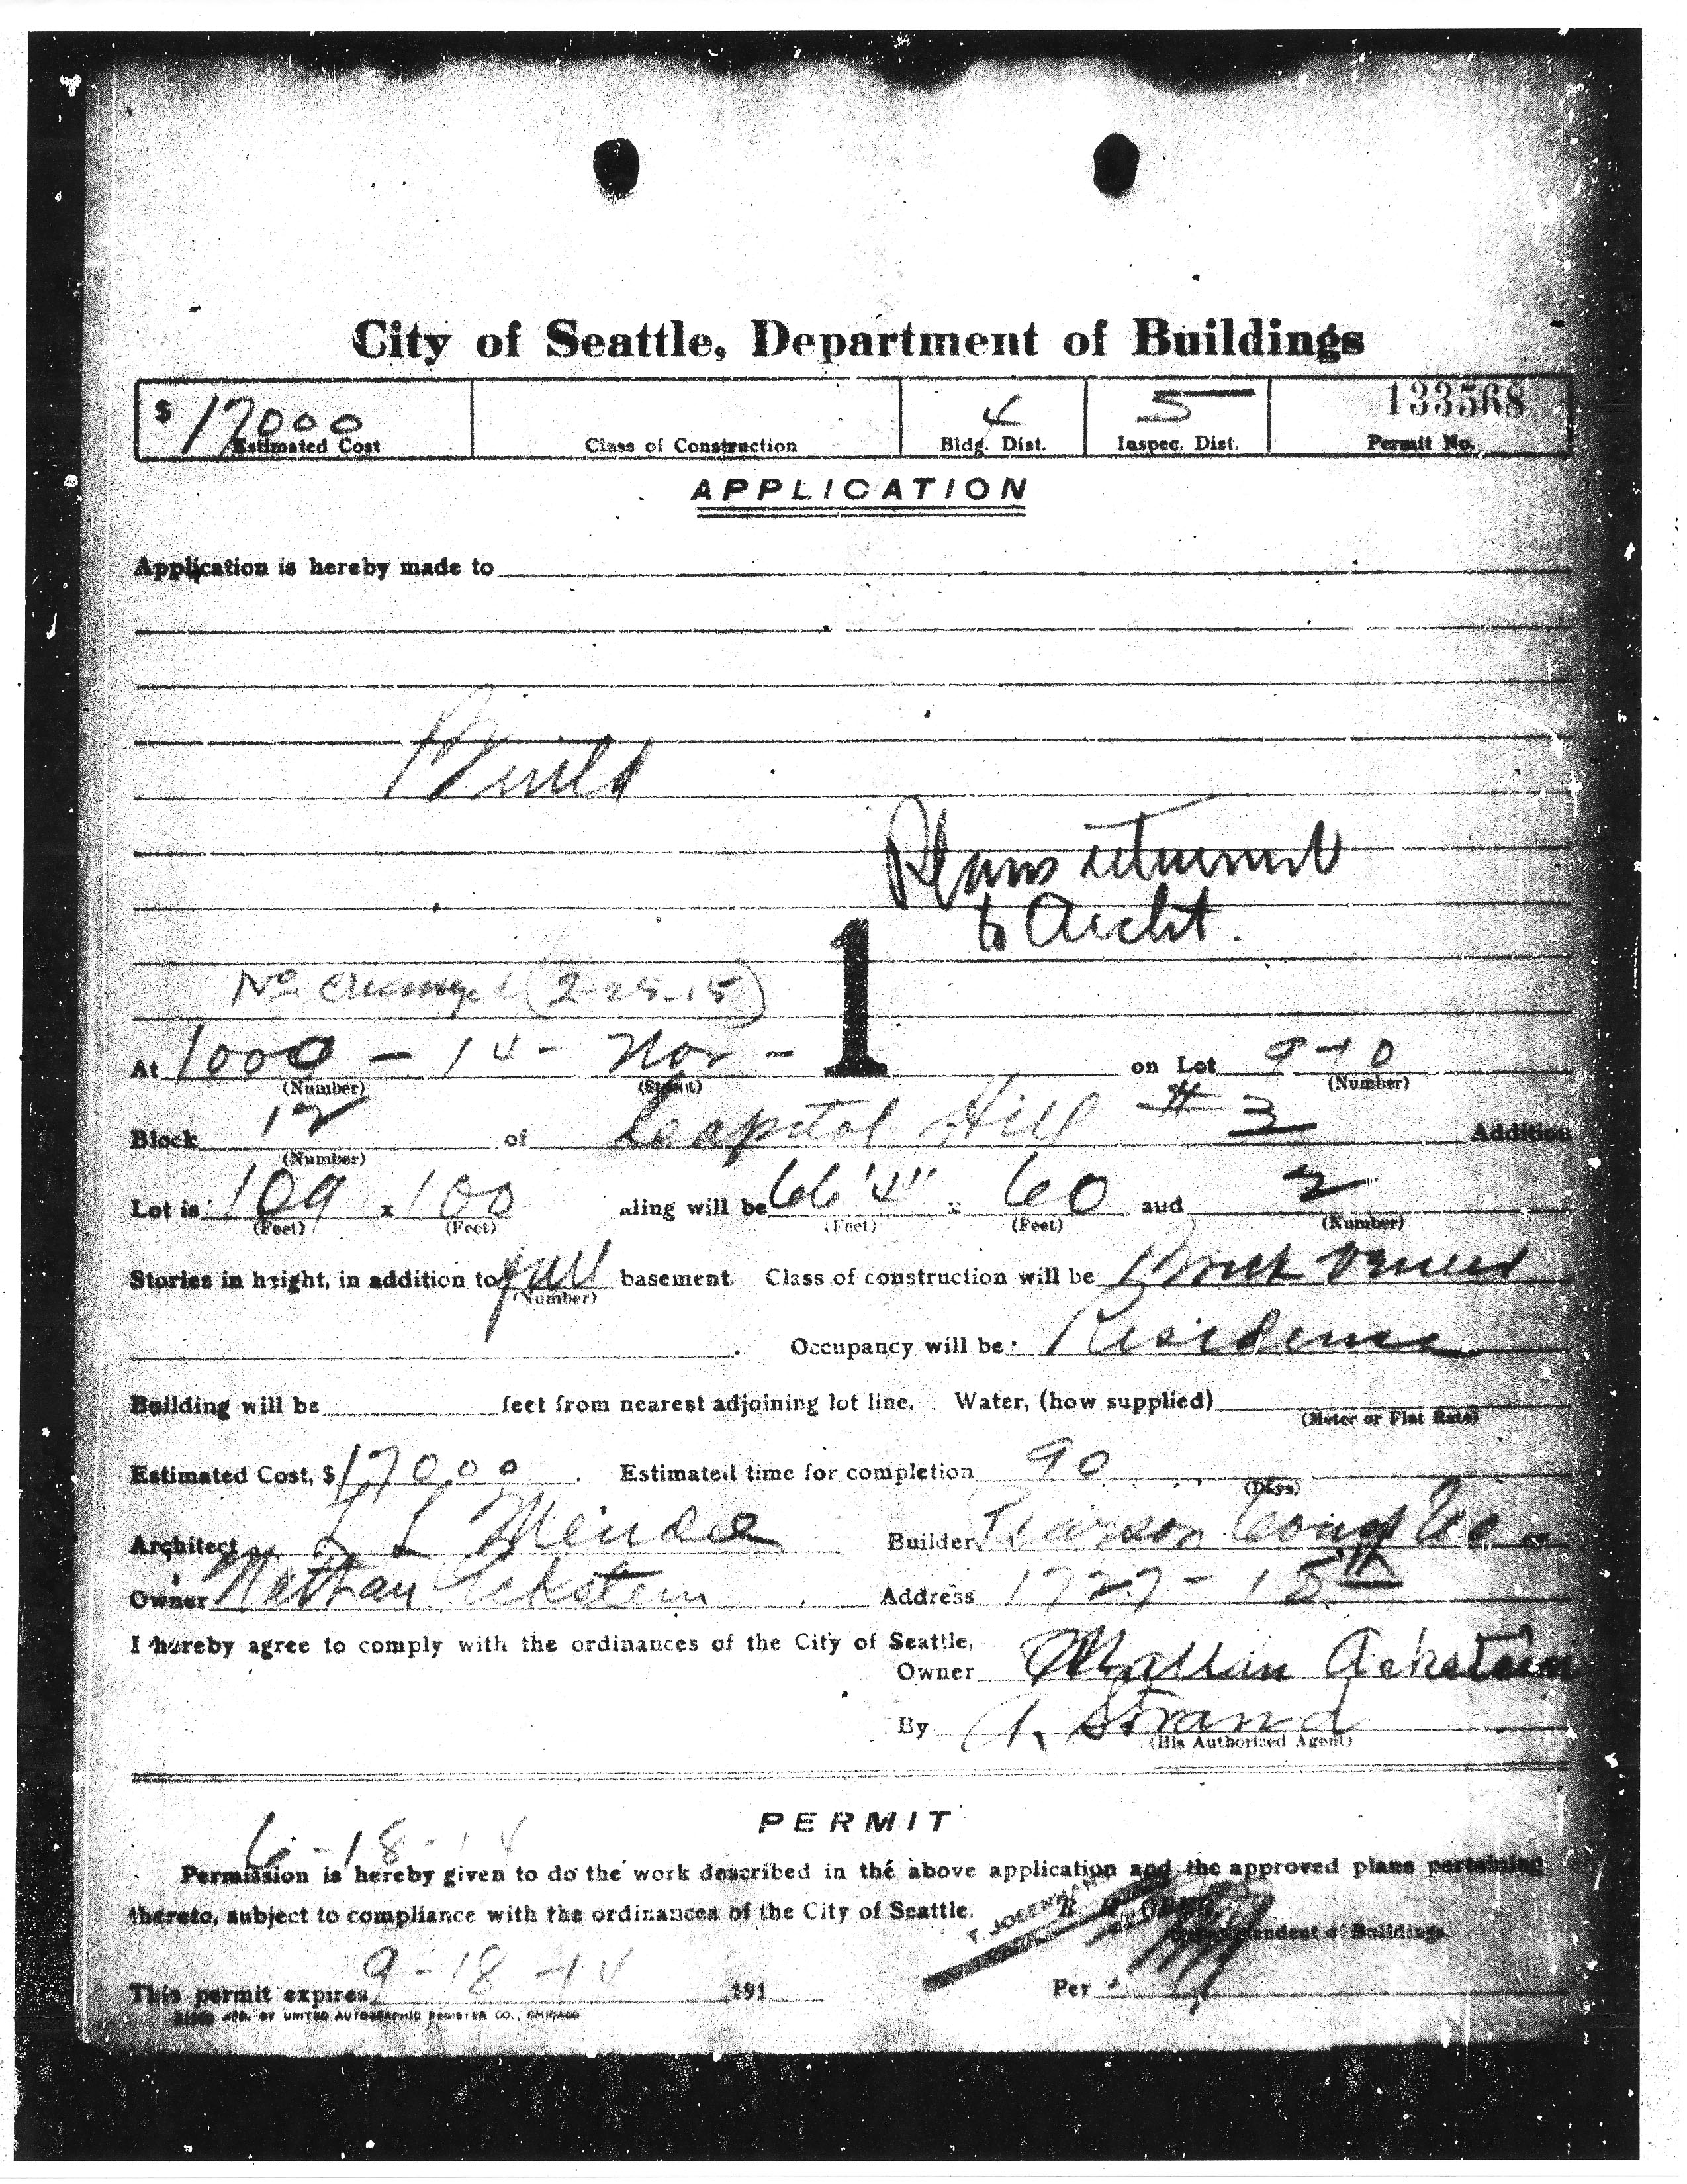 City of Seattle, Department of Buildings
$ 17000 4 5 133568
Estimated Cost Class of Construction Bldg. Dist. Inspec. Dist. Permit No.
APPLICATION
Application is hereby made to
Build
Plans returned
to Archt.
No (2-25-15)
1
At 1000 - 14 - Nor - on Lot 9-10
(Number) (Street) (Number)
Block 12 of Capitol Hill # 3 Addition
(Number)
Lot is 109 x 100 lding will be 66'4" x 60 and 2
(Feet) (Feet) (Feet) (Feet) (Number)
Stories in height, in addition to full basement. Class of construction will be Brick Veneer
(Number)
Occupancy will be Residence
Building will be feet from nearest adjoining lot line. Water, (how supplied)
(Meter or Flat Rate)
Estimated Cost, $ 17000. Estimated time for completion 90
(Days)
Architect L L Mendel Builder Pearson Const Co
Owner Nathan Eckstein Address 1727 - 15th
I hereby agree to comply with the ordinances of the City of Seattle.
Owner Nathan Eckstein
By A. Strand
(His Authorized Agent)
PERMIT
6-18-14
Permission is hereby given to do the work described in the above application and the approved plans pertaining
thereto, subject to compliance with the ordinances of the City of Seattle.
Superintendent of Buildings.
9-18-14
This permit expires 191 Per
MFG. BY UNITED AUTOGRAPHIC REGISTER CO., CHICAGO